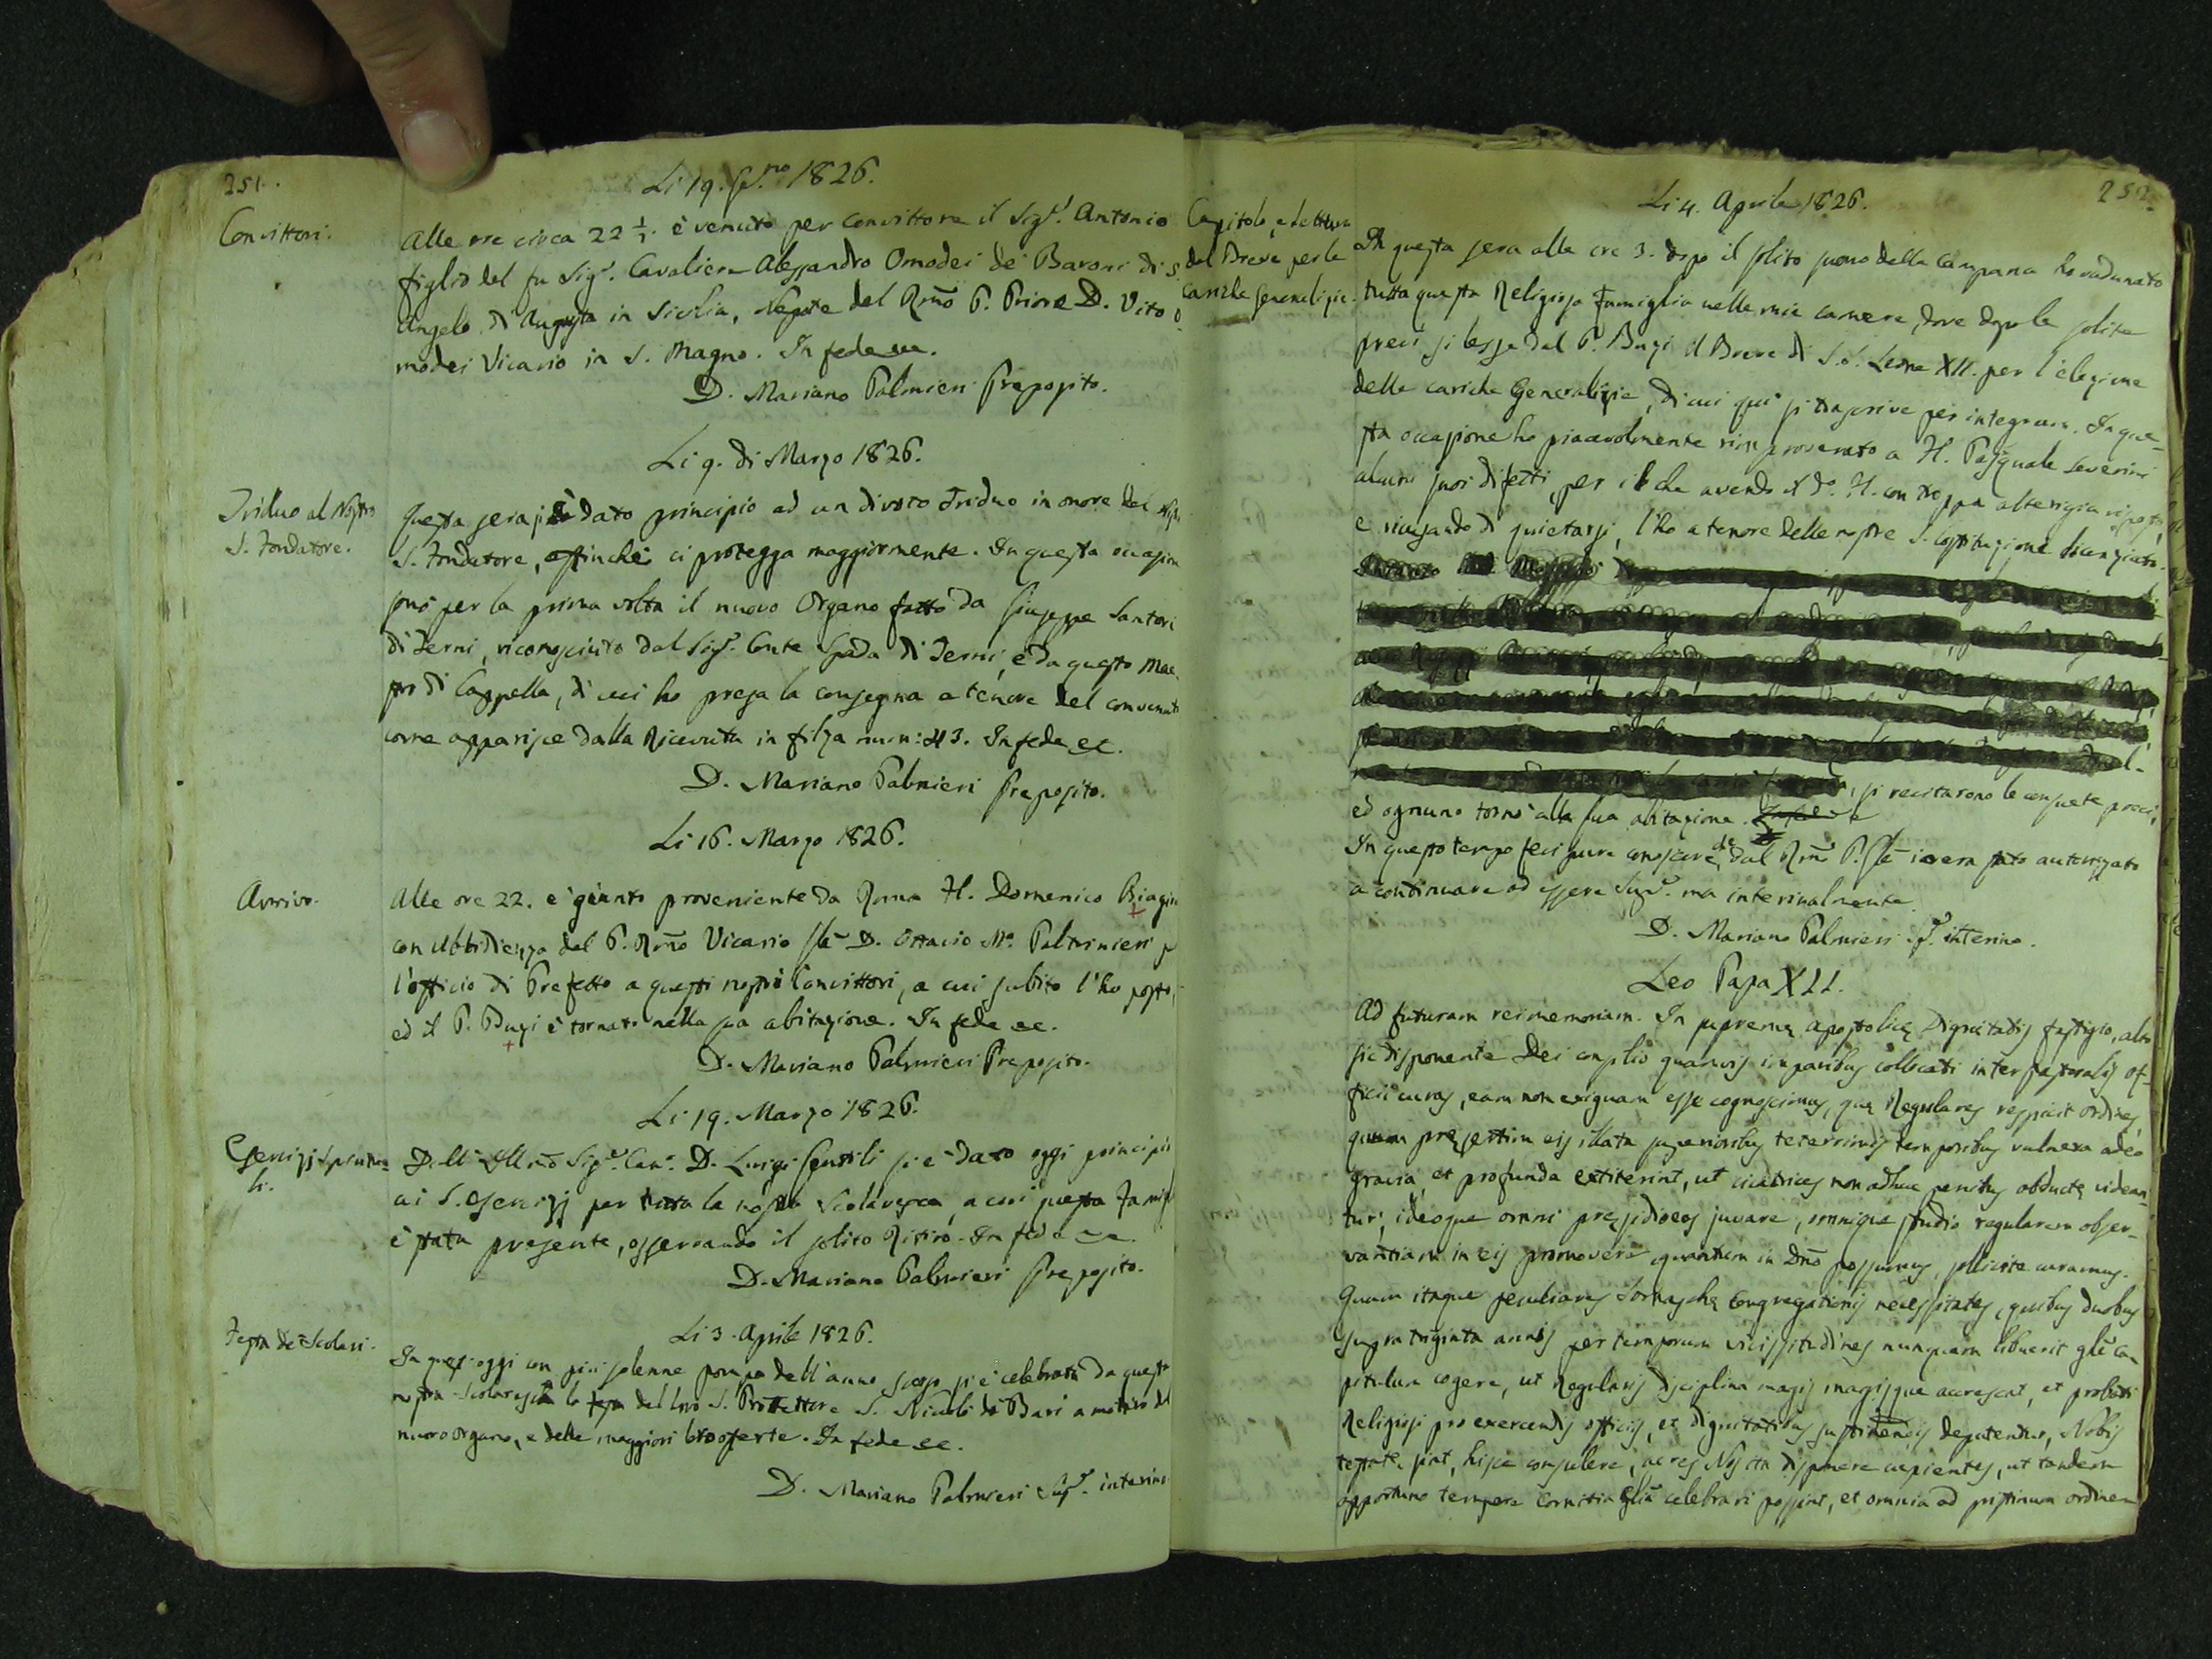 251.
Li 19. Gen.ro 1826.
Convittori.
Alle ore circa 22 1/2. è venuto per convittore il Sig.r Antonio
figlio del fu Sig.r Cavaliere Alessandro Omodei de' Baroni di S.
Angelo di Augusta in Sicilia, Nepote del Rmo P. Priore D. Vito O-
modei Vicario in S. Magno. In fede ec.
D. Mariano Palmieri Preposito.
Li 9. di Marzo 1826.
Triduo al Nostro
S. Fondatore.
Questa sera si è dato principio ad un divoto Triduo in onore del
S. Fondatore, affinchè ci protegga maggiormente. In questa occasion
sonò per la prima volta il nuovo Organo fatto da Giuseppe Santori
di Terni, riconosciuto dal Sig.r Conte Spada di Terni, e da questo Mae-
stro di Cappella, di cui ho presa la consegna a tenore del convenuto
come apparisce dalla Ricevuta in filza num: 43. In fede ec.
D. Mariano Palmieri Preposito.
Li 16. Marzo 1826.
Arrivo.
Alle ore 22. è giunto proveniente da Roma H. Domenico Biagin
con Ubbidienza del P. Rmo Vicario Gle D. Ottavio M.a Paltrinieri p
l'officio di Prefetto a questi nostri Convittori, a cui subito l'ho posto,
ed il P. Bugi è tornato nella sua abitazione. In fede ec.
D. Mariano Palmieri Preposito.
Li 19. Marzo 1826.
Esercizj Spiritua-
li.
Dall' Illmo Sig.r Can.co D. Luigi Gentili si è dato oggi principio
ai S. Esercizj per tutta la nostra Scolaresca, a cui questa Famig
è stata presente, osservando il solito Ritiro. In fede ec.
D. Mariano Palmieri Preposito.
Li 3. Aprile 1826.
Festa de' Scolari.
In quest'oggi con più solenne pompa dell'anno scorso si è celebrata da questa
nostra Scolaresca la festa del loro S. Protettore S. Nicolò di Bari a motivo del
nuovo Organo, e delle maggiori loro offerte. In fede ec.
D. Mariano Palmieri Sup.r interino
252.
Li 4. Aprile 1826.
Capitolo, e lettura
del Breve per le
cariche Generalizie.
In questa sera alle ore 3. dopo il solito suono della Campana ho radunato
tutta questa Religiosa Famiglia nelle mie camere, dove dopo le solite
preci si lesse dal P. Bugi il Breve di S.S. Leone XII. per l'elezione
delle cariche Generalizie, di cui qui si trascrive per integrum. In que-
sta occasione ho piacevolmente rimproverato a H. Pasquale Severini
alcuni suoi difetti, per il che avendo il d.o H. con troppa alterigia risposto,
e ricusando di quietarsi, l'ho a tenore delle nostre S. Costituzione licenziato.
, si recitarono le consuete preci,
ed ognuno tornò alla sua abitazione.
In questo tempo feci pure conoscere, che dal Rmo P. Gle io era stato autorizzato
a continuare ad essere Sup.r ma interinalmente.
D. Mariano Palmieri S.r interino.
Leo Papa XII.
Ad futuram rei memoriam. In supremę Apostolicę Dignitatis fastigio, alto
sic disponente Dei consilio quamvis imparibus collocati inter pastoralis of-
ficii curas, eam non exiguam esse cognoscimus, quę Regulares respicit ordines,
quum pręsertim eis illata superioribus teterrimis temporibus vulnera adeo
gravia, et profunda extiterint, ut cicatrices non adhuc penitus obductę videan-
tur; ideoque omni pręsidio eos juvare, omnique studio regularem obser-
vantiam in eis promovere quantum in Dno possumus, sollicite curamus.
Quum itaque peculiares Somaschę Congregationis necessitates, quibus duobus
supra triginta annis per temporum vicissitudines nunquam libuerit gle ca-
pitulum cogere, ut Regularis disciplina magis magisque accrescat, et probati
Religiosi pro exercendis officiis, et dignitatibus sustinendis deputentur, Nobis
testatę sint, hisce consulere, ac res Nos ita disponere cupientes, ut tandem
opportuno tempore Comitia glia celebrari possint, et omnia ad pristinum ordinem